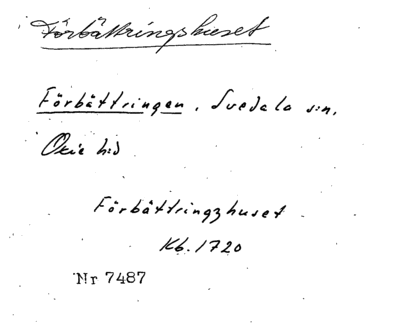 Förbättringshuset
Förbättringen, Svedala s:n,
Oxie h:d
Förbättringzhuset
Kb. 1720
Nr 7487